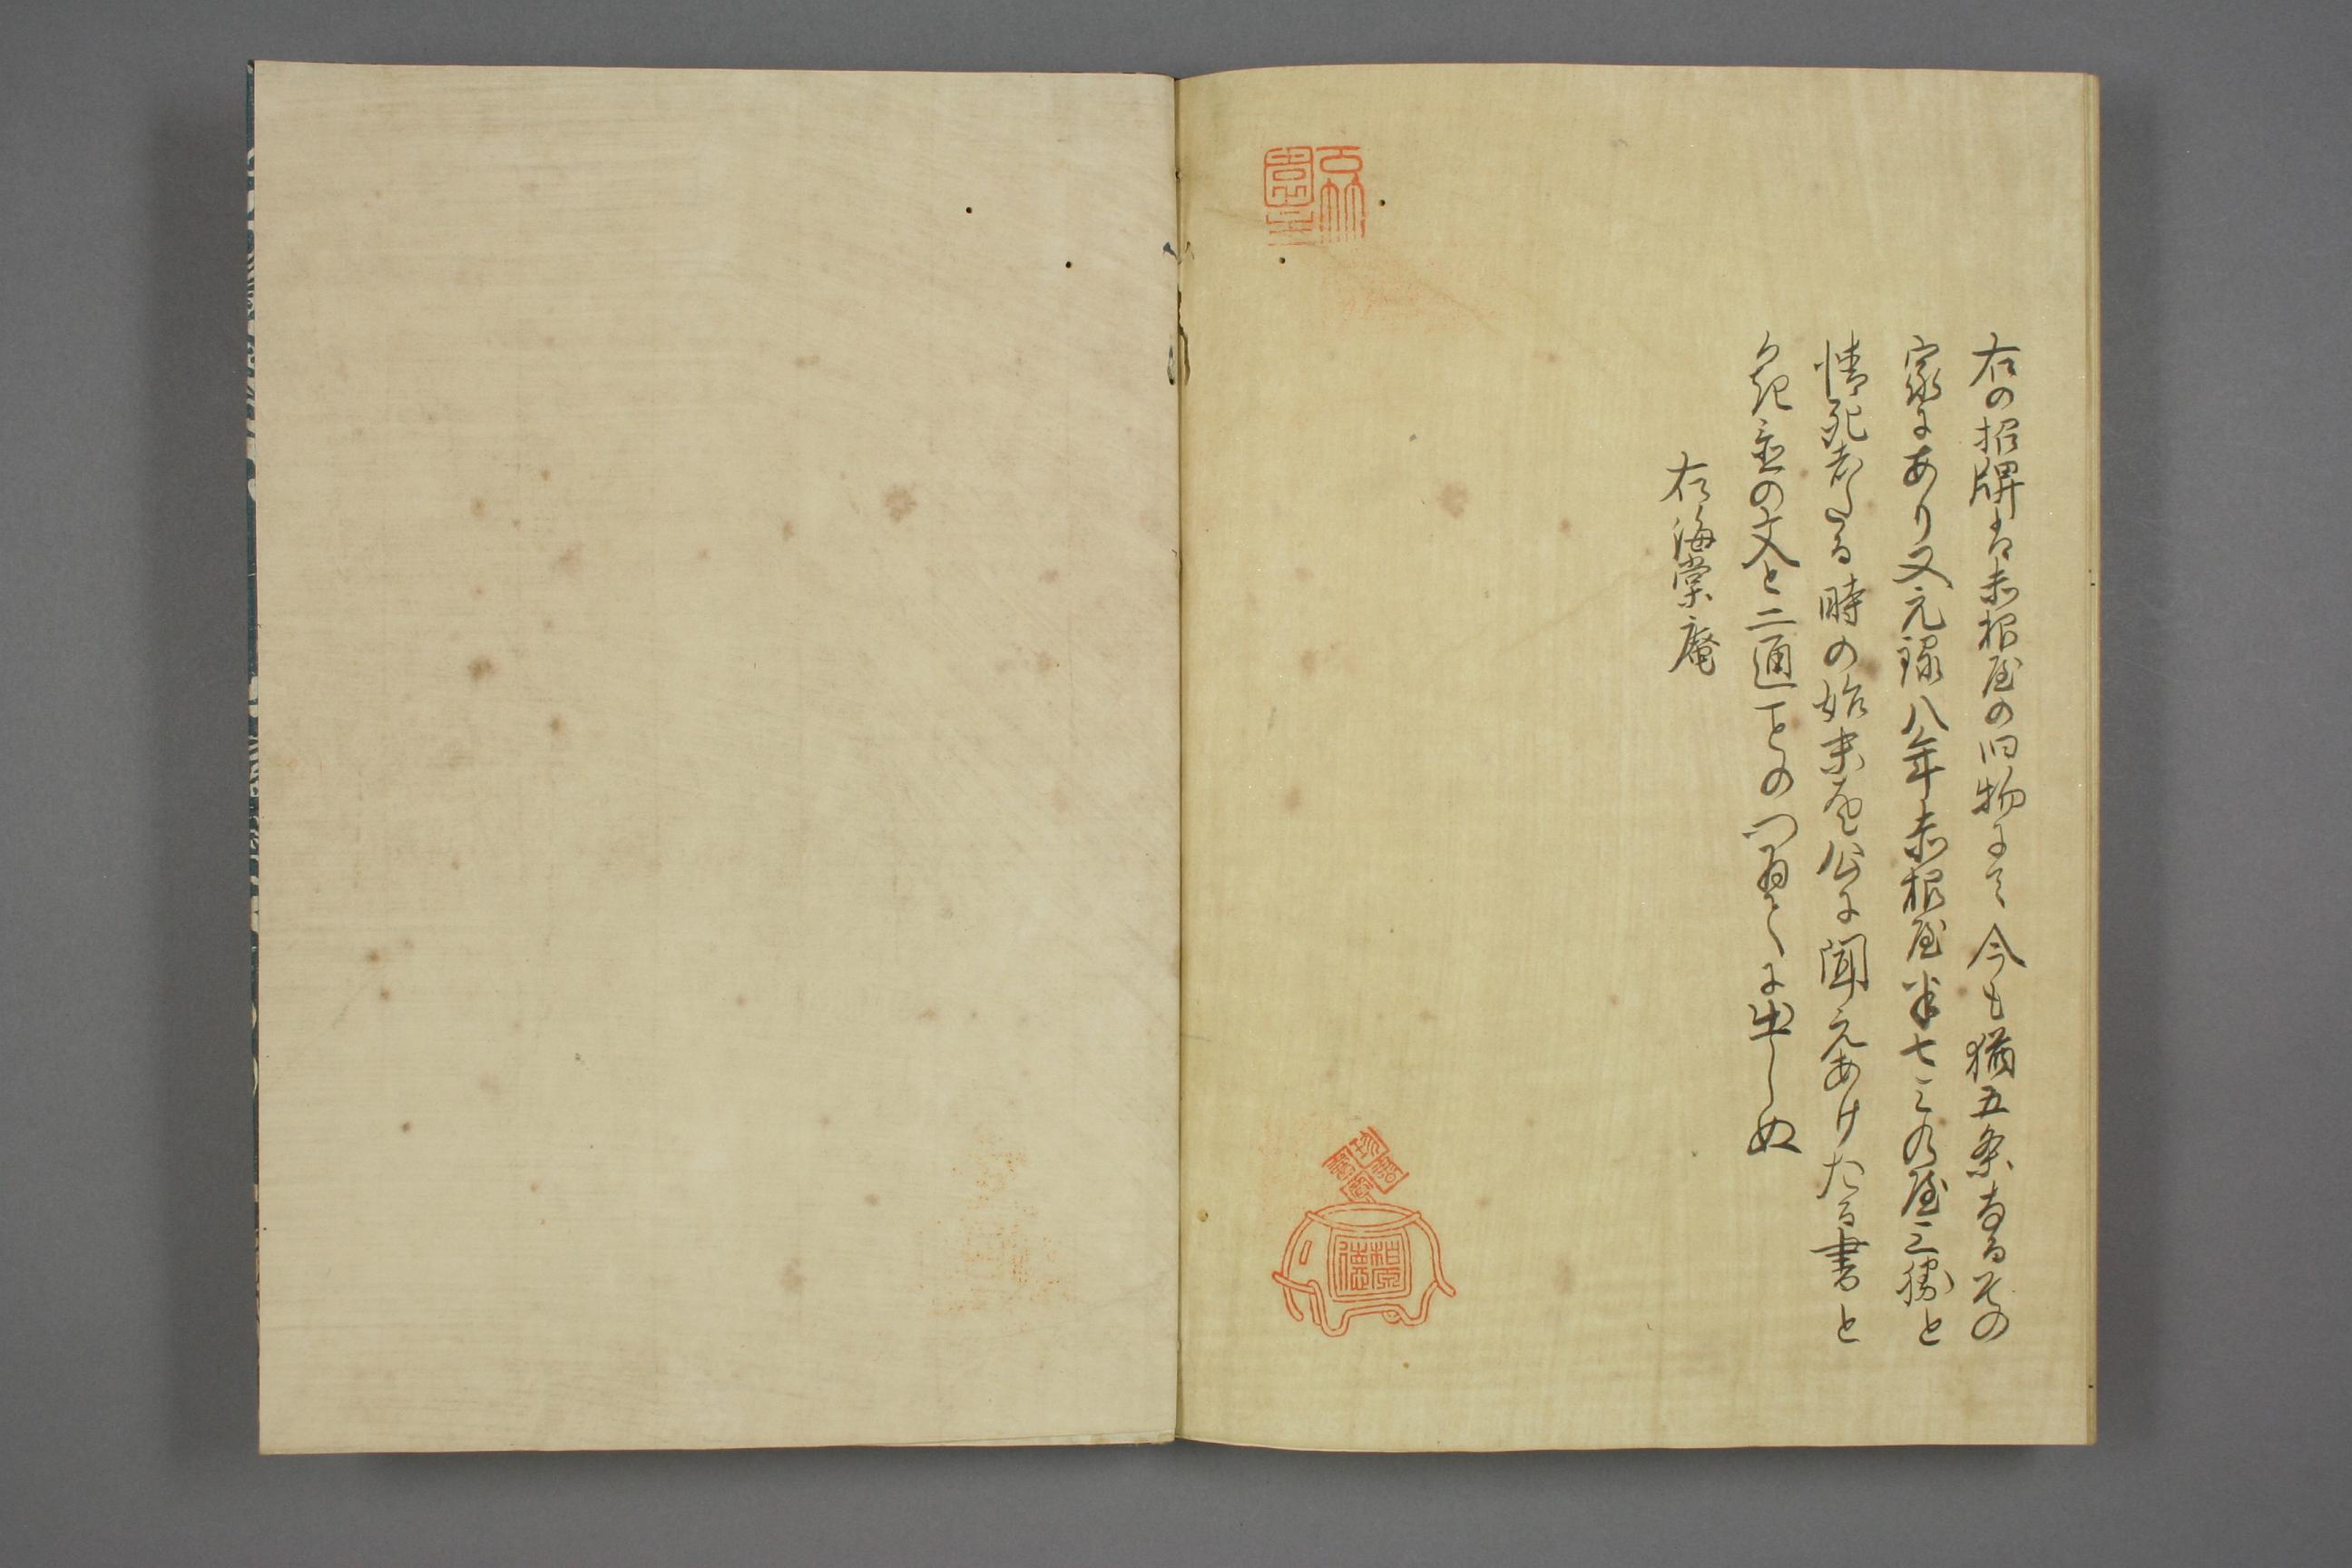 右の招牌は赤根屋の旧物にて今も猶五条なるその
家にあり又元禄八年赤根屋半七ミのや三勝と
情死したる時の始末を公に聞えあけたる書と
の文と二通ともの間にこゝに出しぬ
右海棠庵